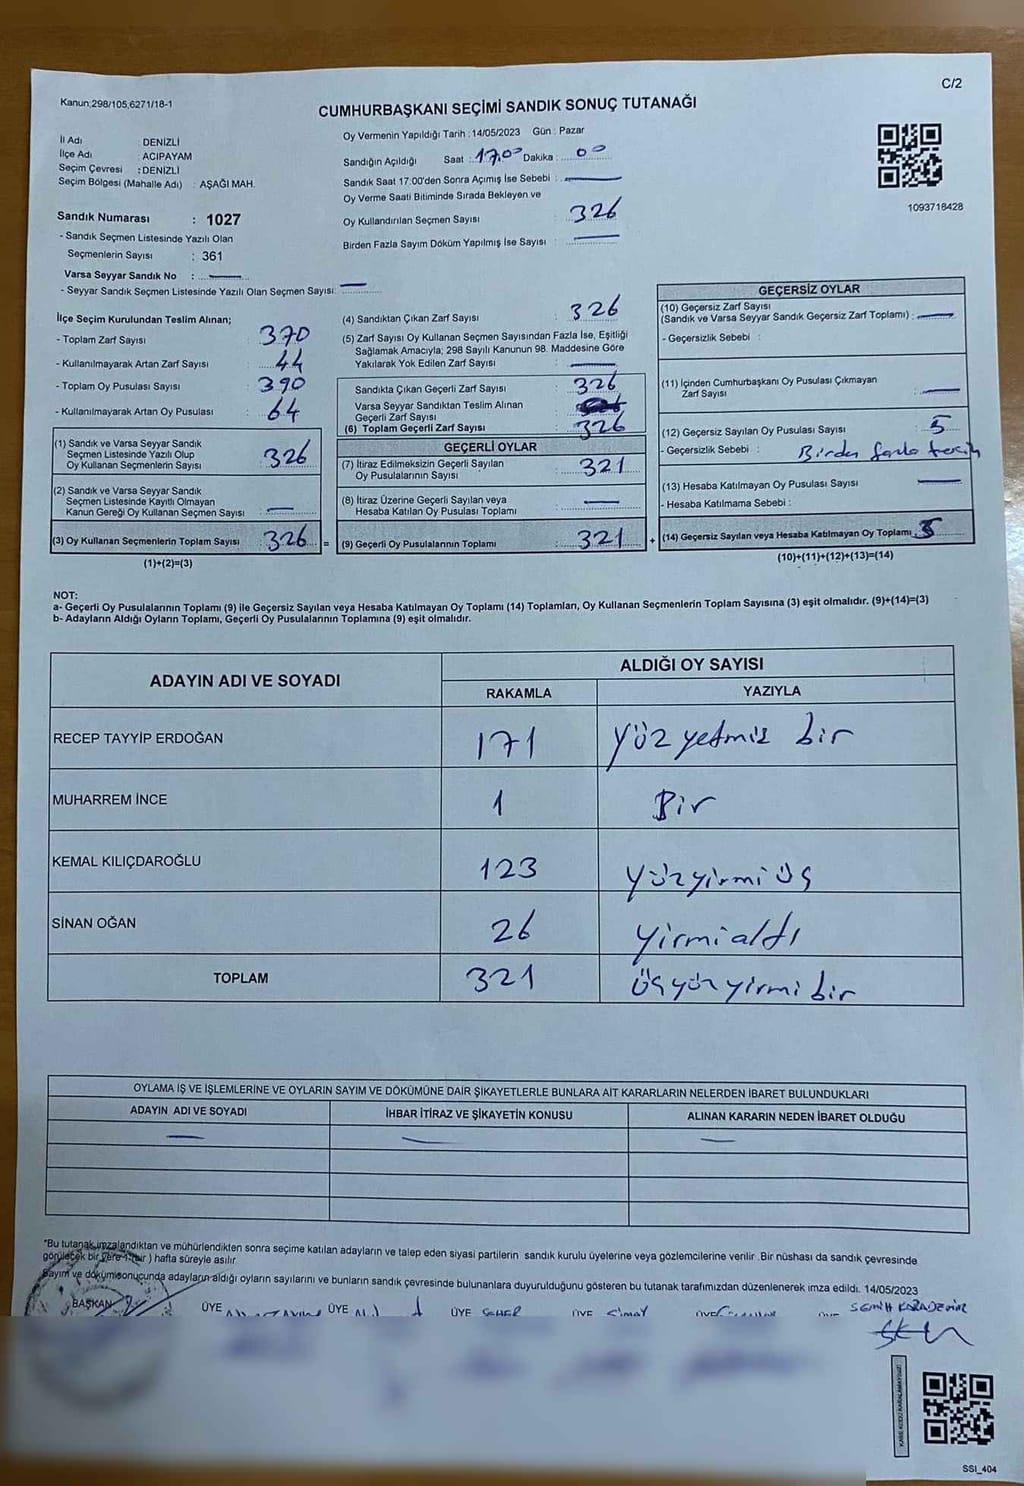 Kanun;298/105,6271/18-1
C/2
CUMHURBAŞKANI SEÇİMİ SANDIK SONUÇ TUTANAĞI
İl Adı DENİZLİ
İlçe Adı : ACIPAYAM
Seçim Çevresi : DENİZLİ
Seçim Bölgesi (Mahalle Adı) : AŞAĞI MAH.
Sandık Numarası : 1027
- Sandık Seçmen Listesinde Yazılı Olan
Seçmenlerin Sayısı : 361
Varsa Seyyar Sandık No :
- Seyyar Sandık Seçmen Listesinde Yazılı Olan Seçmen Sayısı:
Oy Vermenin Yapıldığı Tarih : 14/05/2023 Gün : Pazar
Sandığın Açıldığı Saat : 17.00 Dakika : 00
Sandık Saat 17:00'den Sonra Açımış İse Sebebi :
Oy Verme Saati Bitiminde Sırada Bekleyen ve
Oy Kullandırılan Seçmen Sayısı : 326
Birden Fazla Sayım Döküm Yapılmış İse Sayısı :
1093718428
İlçe Seçim Kurulundan Teslim Alınan;
- Toplam Zarf Sayısı : 370
- Kullanılmayarak Artan Zarf Sayısı : 44
- Toplam Oy Pusulası Sayısı : 390
- Kullanılmayarak Artan Oy Pusulası : 64
(1) Sandık ve Varsa Seyyar Sandık
Seçmen Listesinde Yazılı Olup
Oy Kullanan Seçmenlerin Sayısı : 326
(2) Sandık ve Varsa Seyyar Sandık
Seçmen Listesinde Kayıtlı Olmayan
Kanun Gereği Oy Kullanan Seçmen Sayısı :
(3) Oy Kullanan Seçmenlerin Toplam Sayısı : 326 =
(1)+(2)=(3)
(4) Sandıktan Çıkan Zarf Sayısı : 326
(5) Zarf Sayısı Oy Kullanan Seçmen Sayısından Fazla İse, Eşitliği
Sağlamak Amacıyla; 298 Sayılı Kanunun 98. Maddesine Göre
Yakılarak Yok Edilen Zarf Sayısı :
Sandıkta Çıkan Geçerli Zarf Sayısı : 326
Varsa Seyyar Sandıktan Teslim Alınan
Geçerli Zarf Sayısı :
(6) Toplam Geçerli Zarf Sayısı : 326
GEÇERLİ OYLAR
(7) İtiraz Edilmeksizin Geçerli Sayılan
Oy Pusulalarının Sayısı : 321
(8) İtiraz Üzerine Geçerli Sayılan veya
Hesaba Katılan Oy Pusulası Toplamı :
(9) Geçerli Oy Pusulalarının Toplamı : 321 +
GEÇERSİZ OYLAR
(10) Geçersiz Zarf Sayısı
(Sandık ve Varsa Seyyar Sandık Geçersiz Zarf Toplamı) :
- Geçersizlik Sebebi :
(11) İçinden Cumhurbaşkanı Oy Pusulası Çıkmayan
Zarf Sayısı :
(12) Geçersiz Sayılan Oy Pusulası Sayısı : 5
- Geçersizlik Sebebi : Birden fazla tercih
(13) Hesaba Katılmayan Oy Pusulası Sayısı :
- Hesaba Katılmama Sebebi :
(14) Geçersiz Sayılan veya Hesaba Katılmayan Oy Toplamı : 5
(10)+(11)+(12)+(13)=(14)
NOT:
a- Geçerli Oy Pusulalarının Toplamı (9) ile Geçersiz Sayılan veya Hesaba Katılmayan Oy Toplamı (14) Toplamları, Oy Kullanan Seçmenlerin Toplam Sayısına (3) eşit olmalıdır. (9)+(14)=(3)
b- Adayların Aldığı Oyların Toplamı, Geçerli Oy Pusulalarının Toplamına (9) eşit olmalıdır.
ADAYIN ADI VE SOYADI ALDIĞI OY SAYISI
RAKAMLA YAZIYLA
RECEP TAYYİP ERDOĞAN 171 Yüz yetmiş bir
MUHARREM İNCE 1 Bir
KEMAL KILIÇDAROĞLU 123 yüzyirmi üç
SİNAN OĞAN 26 yirmi altı
TOPLAM 321 üçyüz yirmi bir
OYLAMA İŞ VE İŞLEMLERİNE VE OYLARIN SAYIM VE DÖKÜMÜNE DAİR ŞİKAYETLERLE BUNLARA AİT KARARLARIN NELERDEN İBARET BULUNDUKLARI
ADAYIN ADI VE SOYADI İHBAR İTİRAZ VE ŞİKAYETİN KONUSU ALINAN KARARIN NEDEN İBARET OLDUĞU
*Bu tutanak imzalandıktan ve mühürlendikten sonra seçime katılan adayların ve talep eden siyasi partilerin sandık kurulu üyelerine veya gözlemcilerine verilir. Bir nüshası da sandık çevresinde
görülecek bir yere 1 (bir) hafta süreyle asılır.
Sayım ve dökümsonucunda adayların aldığı oyların sayılarını ve bunların sandık çevresinde bulunanlara duyurulduğunu gösteren bu tutanak tarafımızdan düzenlenerek imza edildi. 14/05/2023
BAŞKAN ÜYE ÜYE ÜYE SEHER ÜYE Simay ÜYE SEMİH KARADEMİR
KARE KODU KARALAMAYINIZ!
SSI_404